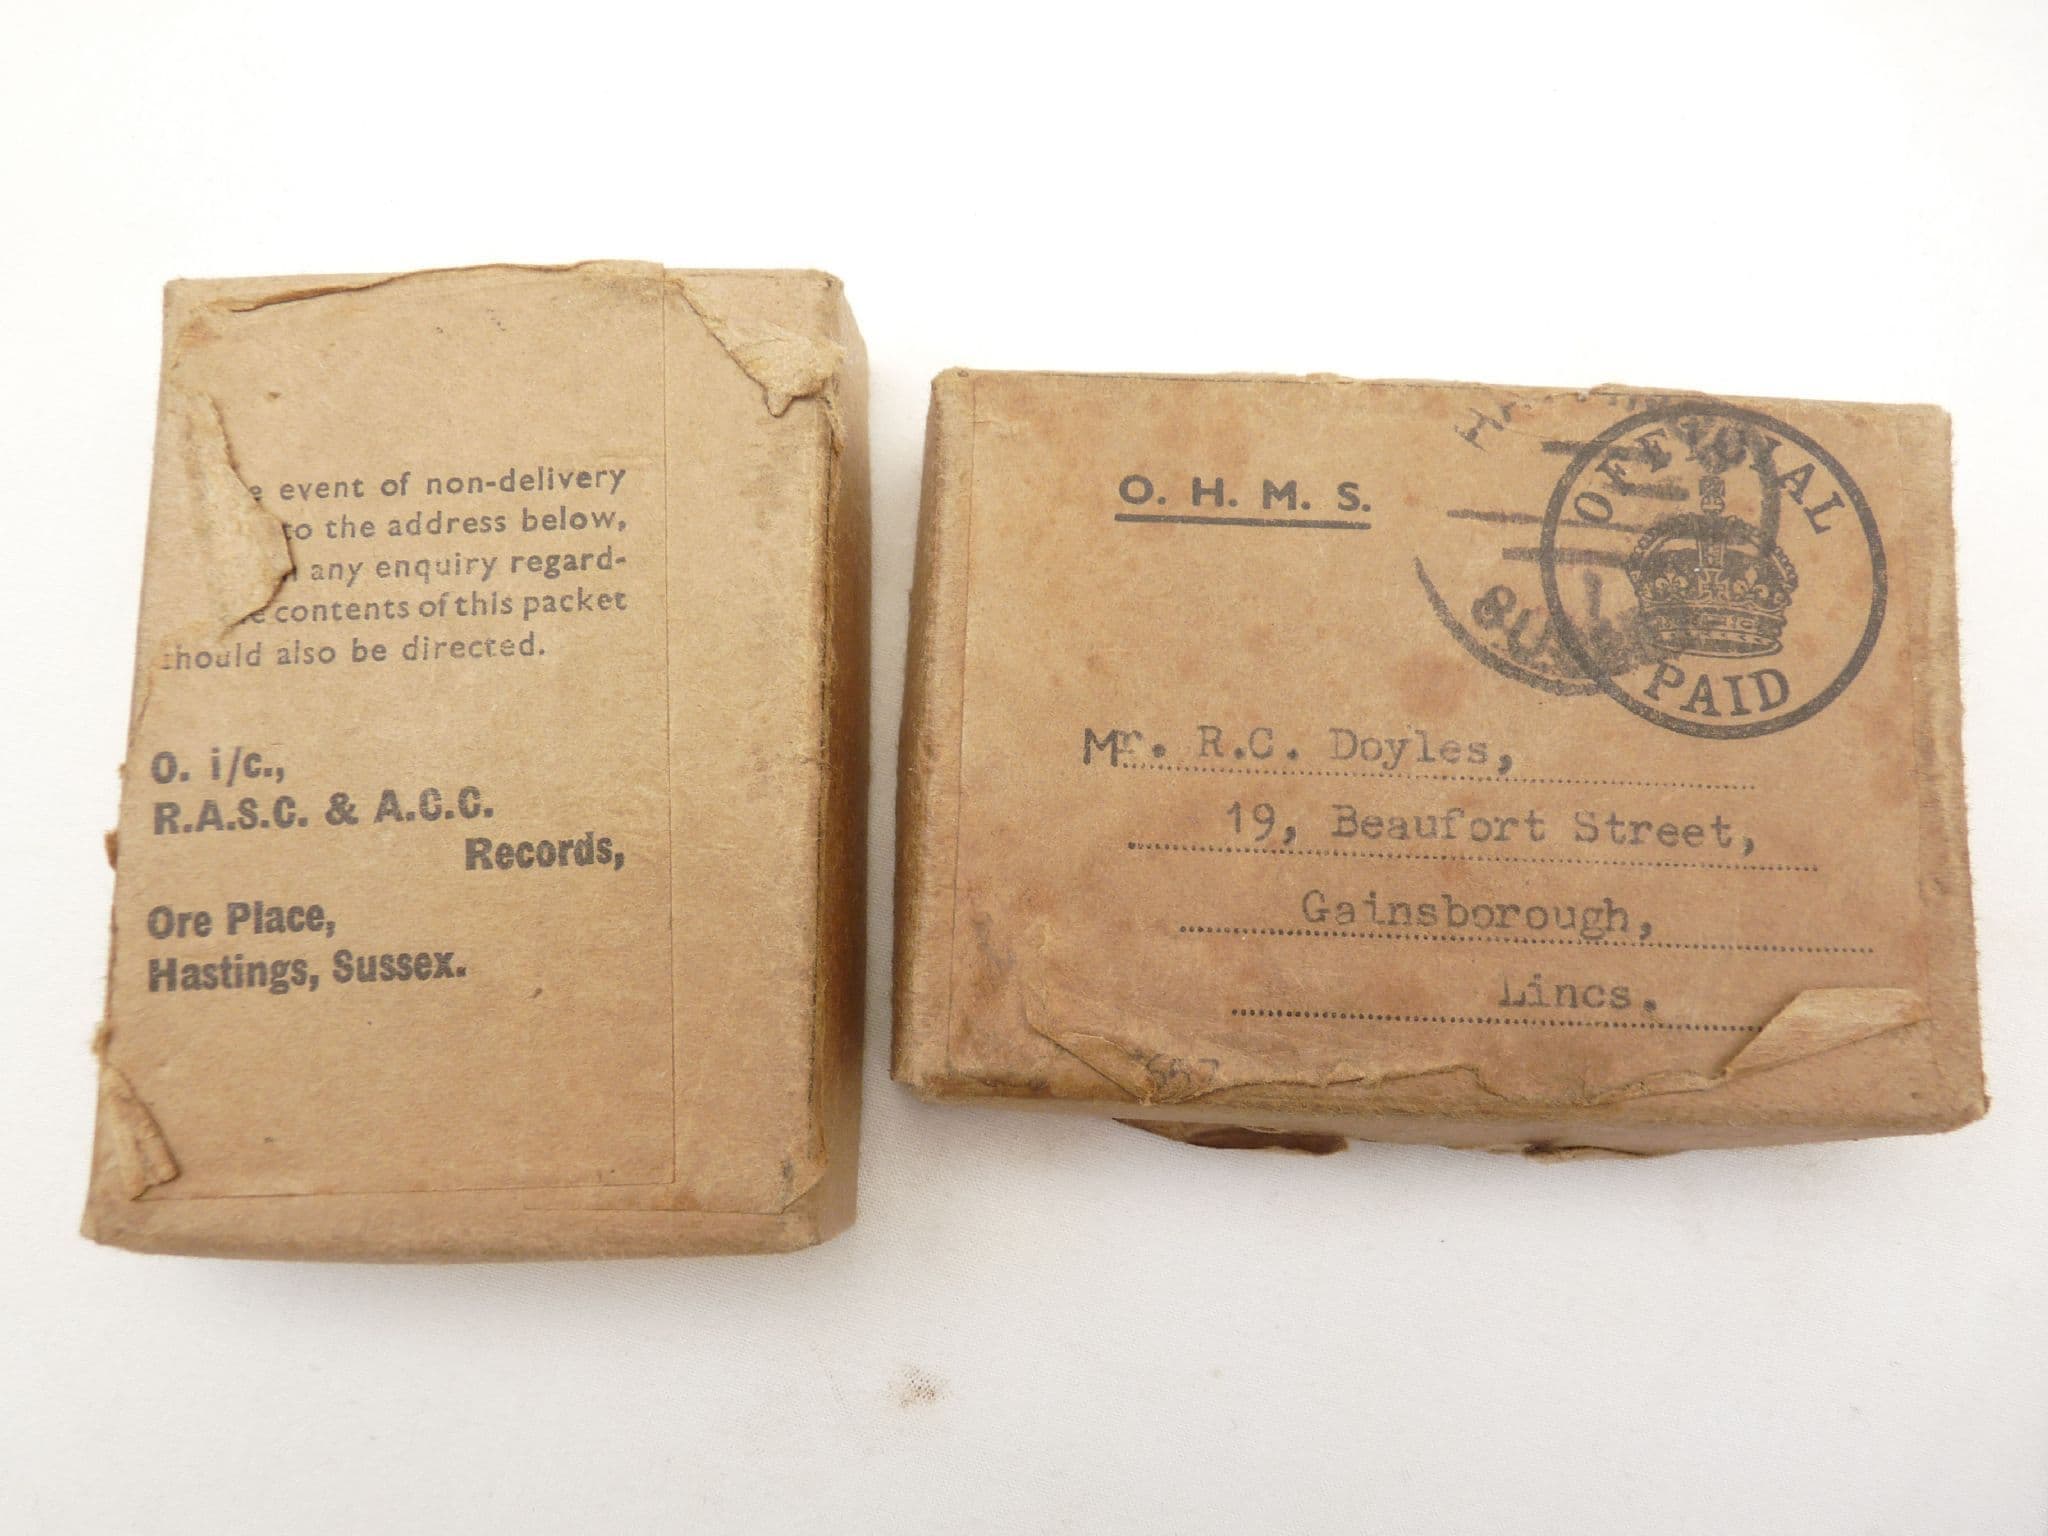 event of non-delivery
to the address below,
any enquiry regard-
contents of this packet
should also be directed.
O. i/c.,
R.A.S.C. & A.C.C.
Records,
Ore Place,
Hastings, Sussex.
O. H. M. S.
OFFICIAL
PAID
Mr. R.C. Doyles,
19, Beaufort Street,
Gainsborough,
Lincs.